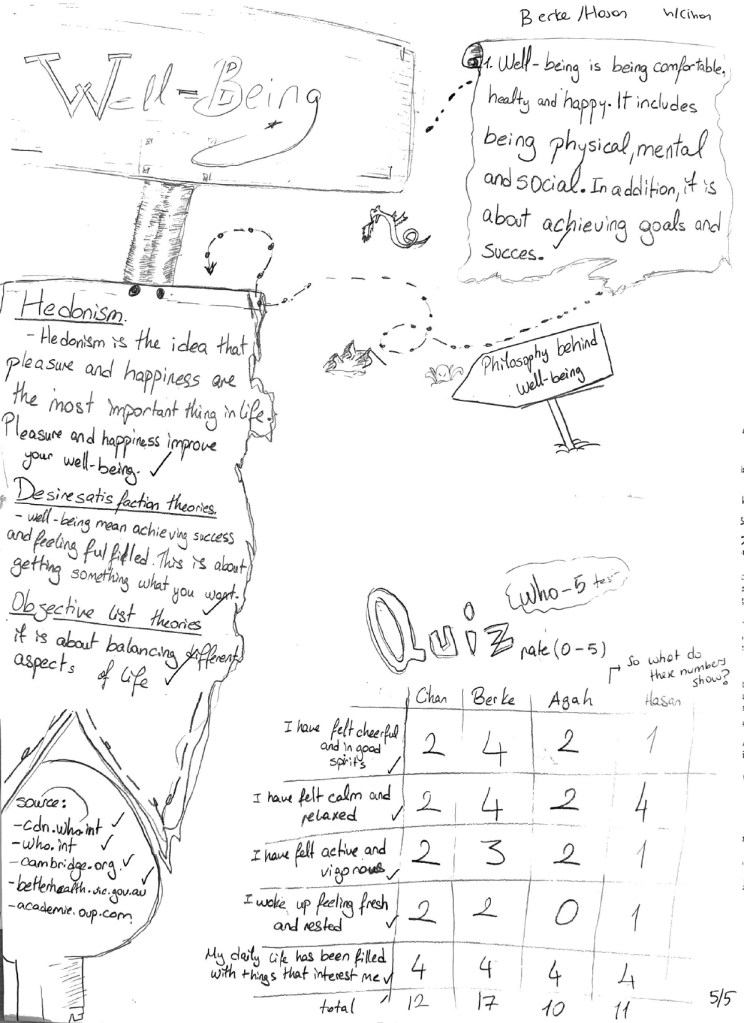 Berke/Hasan
Well-Being
1. Well-being is being comfortable,
healty and happy. It includes
being physical, mental
and social. In addition, it is
about achieving goals and
succes.
Philosophy behind
well-being
Hedonism.
- Hedonism is the idea that
pleasure and happiness are
the most important thing in life.
Pleasure and happiness improve
your well-being.
Desire satisfaction theories.
- well-being mean achieving success
and feeling fulfilled. This is about
getting something what you want.
Objective list theories
it is about balancing different
aspects of life
source:
- cdn.who.int
- who.int
- cambridge.org
- betterhealth.vic.gov.au
- academie.oup.com
Quiz
Who-5 test
rate (0-5)
So what do
these numbers
show?
Cihan Berke Agah Hasan
I have felt cheerful
and in good
spirits 2 4 2 1
I have felt calm and
relaxed 2 4 2 4
I have felt active and
vigorous 2 3 2 1
I woke up feeling fresh
and rested 2 2 0 1
My daily life has been filled
with things that interest me 4 4 4 4
total 12 17 10 11
5/5